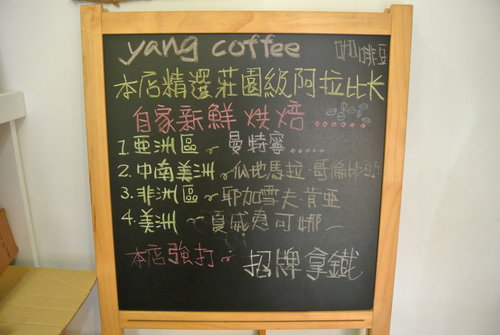 yang coffee 咖啡豆
本店精選莊園級阿拉比卡
自家新鮮烘焙......
1.亞洲區~曼特寧.....
2.中南美洲~瓜地馬拉.哥倫比亞
3.非洲區~耶加雪夫.肯亞
4.美洲~夏威夷可娜~
本店強打~招牌拿鐵